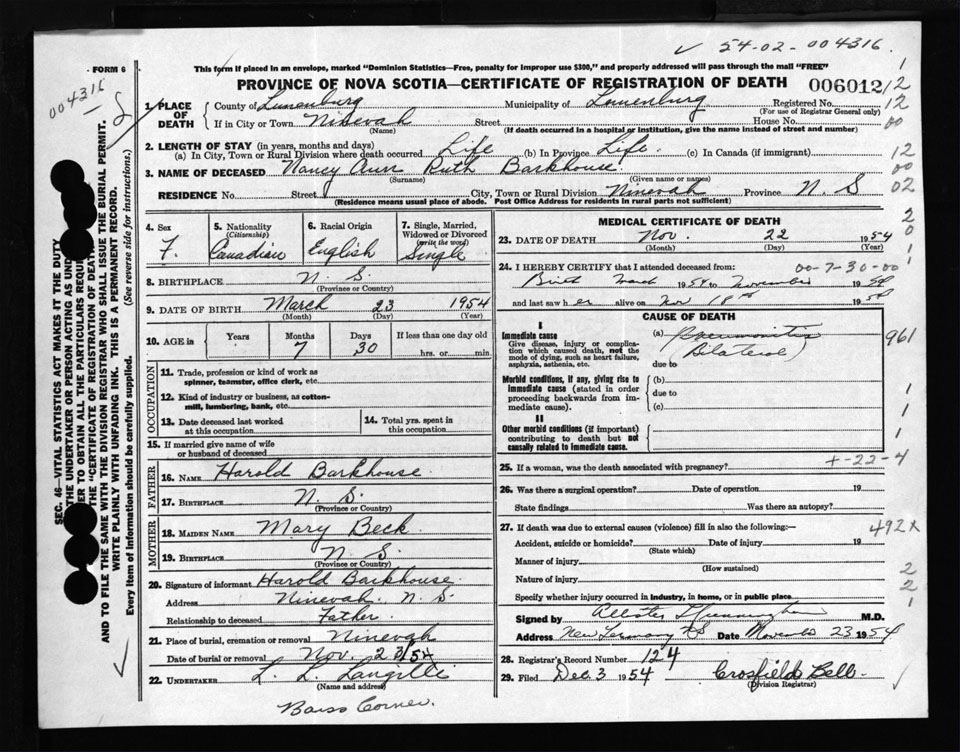 ✓ 54-02-004316
FORM 6
This form if placed in an envelope, marked "Dominion Statistics—Free, penalty for improper use $300," and properly addressed will pass through the mail "FREE"
004316
PROVINCE OF NOVA SCOTIA—CERTIFICATE OF REGISTRATION OF DEATH 006012
1. PLACE OF DEATH
County of Lunenburg Municipality of Lunenburg Registered No.
(For use of Registrar General only)
If in City or Town Ninevah Street House No.
(Name) (If death occurred in a hospital or institution, give the name instead of street and number)
2. LENGTH OF STAY (in years, months and days)
(a) In City, Town or Rural Division where death occurred Life (b) In Province Life. (c) In Canada (if immigrant)
3. NAME OF DECEASED Nancy Ann Ruth Barkhouse.
(Surname) (Given name or names)
RESIDENCE No. Street City, Town or Rural Division Ninevah Province N S
(Residence means usual place of abode. Post Office Address for residents in rural parts not sufficient)
4. Sex F.
5. Nationality (Citizenship) Canadian
6. Racial Origin English
7. Single, Married, Widowed or Divorced (write the word) Single
8. BIRTHPLACE N. S.
(Province or Country)
9. DATE OF BIRTH March 23 1954
(Month) (Day) (Year)
10. AGE in Years Months 7 Days 30 If less than one day old hrs. or min.
OCCUPATION
11. Trade, profession or kind of work as spinner, teamster, office clerk, etc.
12. Kind of industry or business, as cotton-mill, lumbering, bank, etc.
13. Date deceased last worked at this occupation
14. Total yrs. spent in this occupation
15. If married give name of wife or husband of deceased
FATHER
16. NAME Harold Barkhouse.
17. BIRTHPLACE N. S.
(Province or Country)
MOTHER
18. MAIDEN NAME Mary Beck.
19. BIRTHPLACE N S.
(Province or Country)
20. Signature of informant Harold Barkhouse.
Address Ninevah. N. S.
Relationship to deceased Father.
21. Place of burial, cremation or removal Ninevah
Date of burial or removal Nov. 23/54
22. UNDERTAKER L. L. Langille
(Name and address)
Barss Corner.
MEDICAL CERTIFICATE OF DEATH
23. DATE OF DEATH Nov. 22 1954
(Month) (Day) (Year)
24. I HEREBY CERTIFY that I attended deceased from: 00-7-30-00
Birth March 1954 to November 1954
and last saw her alive on Nov 18th 1954
CAUSE OF DEATH
I
Immediate cause
Give disease, injury or complication which caused death, not the mode of dying, such as heart failure, asphyxia, asthenia, etc.
(a) Pneumonitis bilateral
due to
Morbid conditions, if any, giving rise to immediate cause (stated in order proceeding backwards from immediate cause).
(b)
due to
(c)
II
Other morbid conditions (if important) contributing to death but not causally related to immediate cause.
25. If a woman, was the death associated with pregnancy? +-22-4
26. Was there a surgical operation? Date of operation 19
State findings Was there an autopsy?
27. If death was due to external causes (violence) fill in also the following:—
Accident, suicide or homicide? Date of injury 19
(State which)
Manner of injury
(How sustained)
Nature of injury
Specify whether injury occurred in industry, in home, or in public place
Signed by M.D.
Address New Germany NS Date November 23 1954
28. Registrar's Record Number 124
29. Filed Dec 3 1954 Crosfield Bell.
(Division Registrar)
1
12
12
00
12
00
02
2
0
1
961
1
1
1
492x
2
2
1
SEC. 46—VITAL STATISTICS ACT MAKES IT THE DUTY
THE UNDERTAKER OR PERSON ACTING AS
TO OBTAIN ALL THE PARTICULARS
THE "CERTIFICATE OF REGISTRATION OF DEATH"
AND TO FILE THE SAME WITH THE DIVISION REGISTRAR WHO SHALL ISSUE THE BURIAL PERMIT.
WRITE PLAINLY WITH UNFADING INK. THIS IS A PERMANENT RECORD.
Every item of information should be carefully supplied. (See reverse side for instructions.)